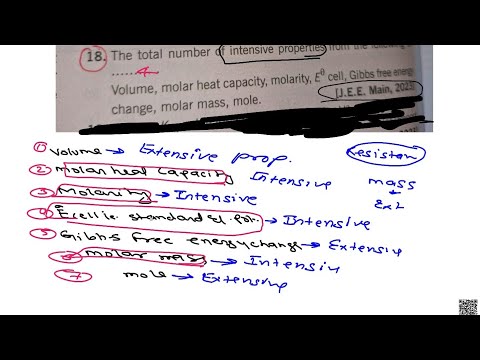 18. The total number of intensive properties from the following
......4
Volume, molar heat capacity, molarity, E⁰ cell, Gibbs free energy
change, molar mass, mole. [J.E.E. Main, 2023]
① Volume → Extensive prop.
Resistan
② Molar heat capacity Intensive
mass
③ Molarity → Intensive
Ex
④ E°cell i.e. standard el. pot. → Intensive
⑤ Gibbs free energy change → Extensiv
⑥ molar mass → Intensiv
⑦ mole → Extensive